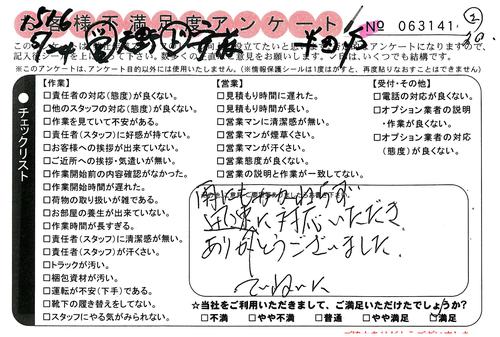 お客様不満足度アンケート
No 063141
2
※このアンケートは、アンケート目的以外には使用いたしません。(※情報保護シールは1度はがすと、再度貼りなおすことはできません)
チェックリスト
【作業】
□責任者の対応(態度)が良くない。
□他のスタッフの対応(態度)が良くない。
□作業を見ていて不安がある。
□責任者(スタッフ)に好感が持てない。
□お客様への挨拶が出来ていない。
□ご近所への挨拶・気遣いが無い。
□作業開始前の内容確認がなかった。
□作業開始時間が遅れた。
□荷物の取り扱いが雑である。
□お部屋の養生が出来ていない。
□作業時間が長すぎる。
□責任者(スタッフ)に清潔感が無い。
□責任者(スタッフ)が汗くさい。
□トラックが汚い。
□梱包資材が汚い。
□運転が不安(下手)である。
□靴下の履き替えをしてない。
□スタッフにやる気がみられない。
【営業】
□見積もり時間に遅れた。
□見積もり時間が長い。
□営業マンに清潔感が無い。
□営業マンが煙草くさい。
□営業マンが汗くさい。
□営業態度が良くない。
□営業の説明と作業が一致してない。
【受付・その他】
□電話の対応が良くない。
□オプション業者の説明
・作業が良くない。
□オプション業者の対応
(態度)が良くない。
雨にもかかわらず
迅速に対応いただき
ありがとうございました。
ていねいに
☆当社をご利用いただきまして、ご満足いただけたでしょうか?
□不満 □やや不満 □普通 □やや満足 □満足